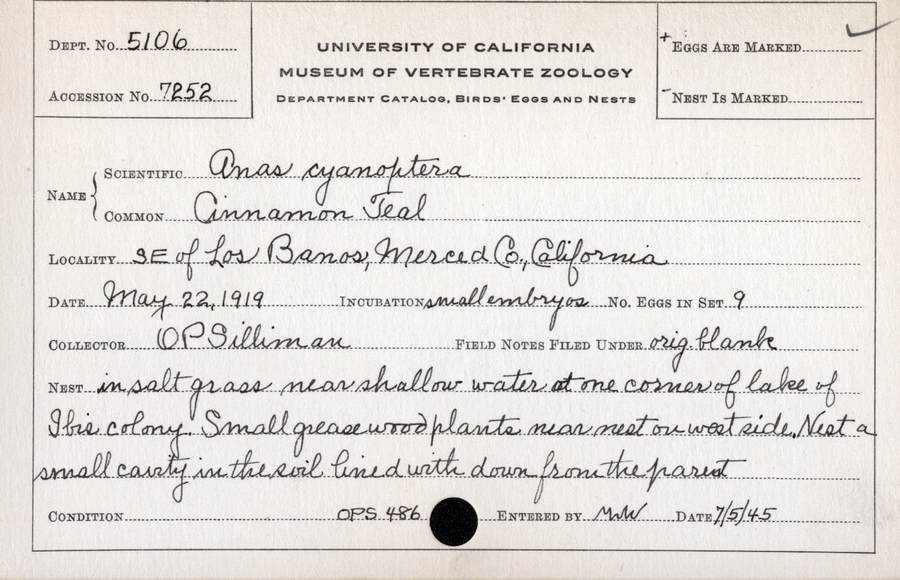 DEPT. No. 5106
ACCESSION No. 7252
UNIVERSITY OF CALIFORNIA
MUSEUM OF VERTEBRATE ZOOLOGY
DEPARTMENT CATALOG, BIRDS' EGGS AND NESTS
+ EGGS ARE MARKED ✓
- NEST IS MARKED
NAME
SCIENTIFIC Anas cyanoptera
COMMON Cinnamon Teal
LOCALITY SE of Los Banos, Merced Co., California
DATE May 22, 1919 INCUBATION small embryos No. EGGS IN SET 9
COLLECTOR OPSilliman FIELD NOTES FILED UNDER orig. blank
NEST in salt grass near shallow water at one corner of lake of
Ibis colony. Small greasewood plants near nest on west side. Nest a
small cavity in the soil lined with down from the parent
CONDITION OPS 486 ENTERED BY MWW DATE 7/5/45